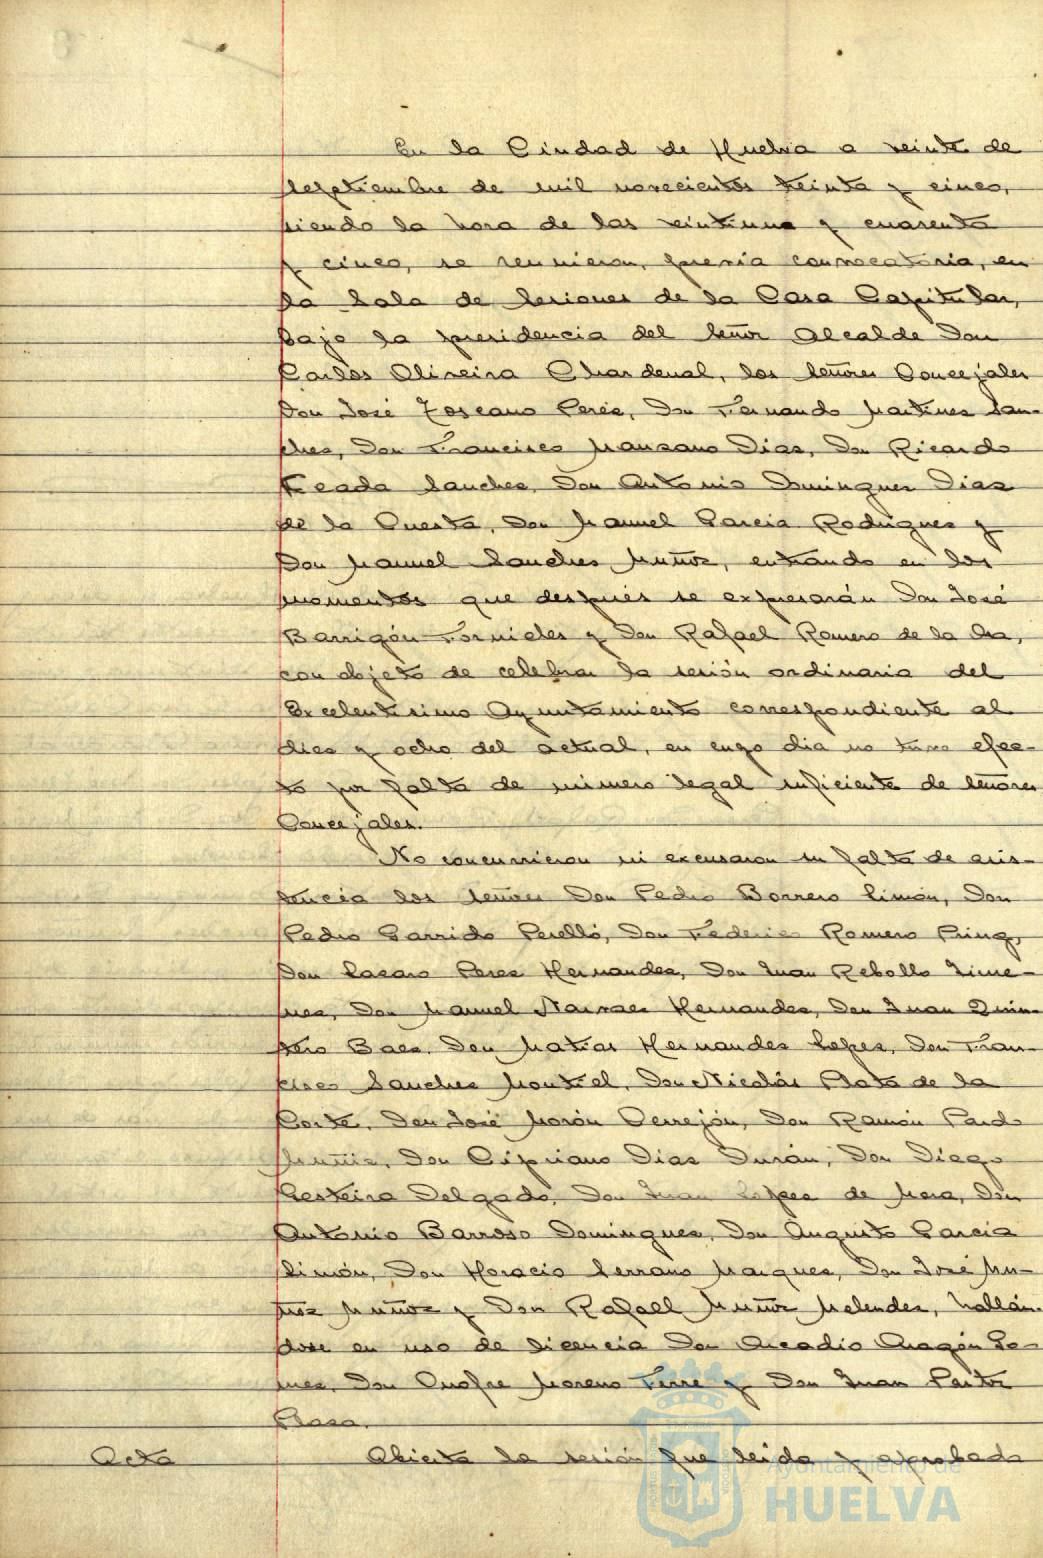 En la Ciudad de Huelva a veinte de
septiembre de mil novecientos treinta y cinco,
siendo la hora de las veintiuna y cuarenta
y cinco, se reunieron, previa convocatoria, en
la Sala de Sesiones de la Casa Capitular,
bajo la presidencia del Señor Alcalde Don
Carlos Oliveira Chardenal, los Señores Concejales
Don José Toscano Perez, Don Fernando Martinez San-
chez, Don Francisco Manzano Diaz, Don Ricardo
Terrada Sanchez, Don Antonio Dominguez Diaz
de la Cuesta, Don Manuel Garcia Rodriguez y
Don Manuel Sanchez Muñoz, entrando en los
momentos que después se expresarán Don José
Barrigón Fornieles y Don Rafael Romero de la Osa,
con objeto de celebrar la sesión ordinaria del
Excelentisimo Ayuntamiento correspondiente al
diez y ocho del actual, en cuyo dia no tuvo efec-
to por falta de número legal suficiente de Señores
Concejales.
No concurrieron ni excusaron su falta de asis-
tencia los señores Don Pedro Borrero Limón, Don
Pedro Garrido Perelló, Don Federico Romero Pring,
Don Lazaro Perez Hernandez, Don Juan Rebollo Jime-
nez, Don Manuel Narvaez Hernandez, Don Juan Quin-
tero Baez, Don Matias Hernandez Lopez, Don Fran-
cisco Sanchez Montiel, Don Nicolás Plata de la
Corte, Don José Morón Cerrejón, Don Ramón Pardo
Muñiz, Don Cipriano Diaz Durán, Don Diego
Gesteira Delgado, Don Juan Lopez de Mora, Don
Antonio Barroso Dominguez, Don Augusto Garcia
Limón, Don Horacio Serrano Marquez, Don José Mu-
ñoz Muñoz y Don Rafael Muñoz Melendez, hallán-
dose en uso de licencia Don Arcadio Aragón Go-
mez, Don Onofre Moreno Ferre y Don Juan Pastor
Plaza.
Acta Abierta la sesión fue leida y aprobada
Ayuntamiento de
HUELVA